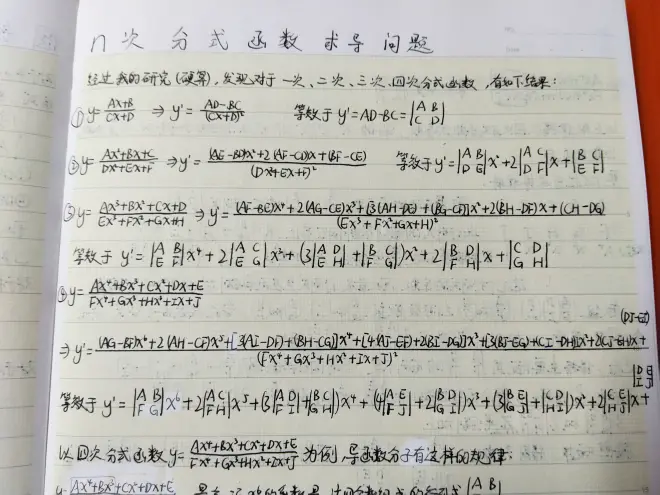 n 次 分 式 函 数 求 导 问 题
经过我的研究(硬算),发现对于一次、二次、三次、四次分式函数,有如下结果:
① y=\frac{Ax+B}{Cx+D} ⇒ y'=\frac{AD-BC}{(Cx+D)^2} 等效于 y'=AD-BC=\begin{vmatrix}A&B\\C&D\end{vmatrix}
② y=\frac{Ax^2+Bx+C}{Dx^2+Ex+F} ⇒ y'=\frac{(AE-BD)x^2+2(AF-CD)x+(BF-CE)}{(Dx^2+Ex+F)^2} 等效于 y'=\begin{vmatrix}A&B\\D&E\end{vmatrix}x^2+2\begin{vmatrix}A&C\\D&F\end{vmatrix}x+\begin{vmatrix}B&C\\E&F\end{vmatrix}
③ y=\frac{Ax^3+Bx^2+Cx+D}{Ex^3+Fx^2+Gx+H} ⇒ y'=\frac{(AF-BE)x^4+2(AG-CE)x^3+[3(AH-DE)+(BG-CF)]x^2+2(BH-DF)x+(CH-DG)}{(Ex^3+Fx^2+Gx+H)^2}
等效于 y'=\begin{vmatrix}A&B\\E&F\end{vmatrix}x^4+2\begin{vmatrix}A&C\\E&G\end{vmatrix}x^3+(3\begin{vmatrix}A&D\\E&H\end{vmatrix}+\begin{vmatrix}B&C\\F&G\end{vmatrix})x^2+2\begin{vmatrix}B&D\\F&H\end{vmatrix}x+\begin{vmatrix}C&D\\G&H\end{vmatrix}
④ y=\frac{Ax^4+Bx^3+Cx^2+Dx+E}{Fx^4+Gx^3+Hx^2+Ix+J}
⇒ y'=\frac{(AG-BF)x^6+2(AH-CF)x^5+[3(AI-DF)+(BH-CG)]x^4+[4(AJ-EF)+2(BI-DG)]x^3+[3(BJ-EG)+(CI-DH)]x^2+2(CJ-EH)x+(DJ-EI)}{(Fx^4+Gx^3+Hx^2+Ix+J)^2}
等效于 y'=\begin{vmatrix}A&B\\F&G\end{vmatrix}x^6+2\begin{vmatrix}A&C\\F&H\end{vmatrix}x^5+(3\begin{vmatrix}A&D\\F&I\end{vmatrix}+\begin{vmatrix}B&C\\G&H\end{vmatrix})x^4+(4\begin{vmatrix}A&E\\F&J\end{vmatrix}+2\begin{vmatrix}B&D\\G&I\end{vmatrix})x^3+(3\begin{vmatrix}B&E\\G&J\end{vmatrix}+\begin{vmatrix}C&D\\H&I\end{vmatrix})x^2+2\begin{vmatrix}C&E\\H&J\end{vmatrix}x+\begin{vmatrix}D&E\\I&J\end{vmatrix}
以四次分式函数 y=\frac{Ax^4+Bx^3+Cx^2+Dx+E}{Fx^4+Gx^3+Hx^2+Ix+J} 为例,导函数分子有这样的规律:
Ax^4+Bx^3+Cx^2+Dx+E